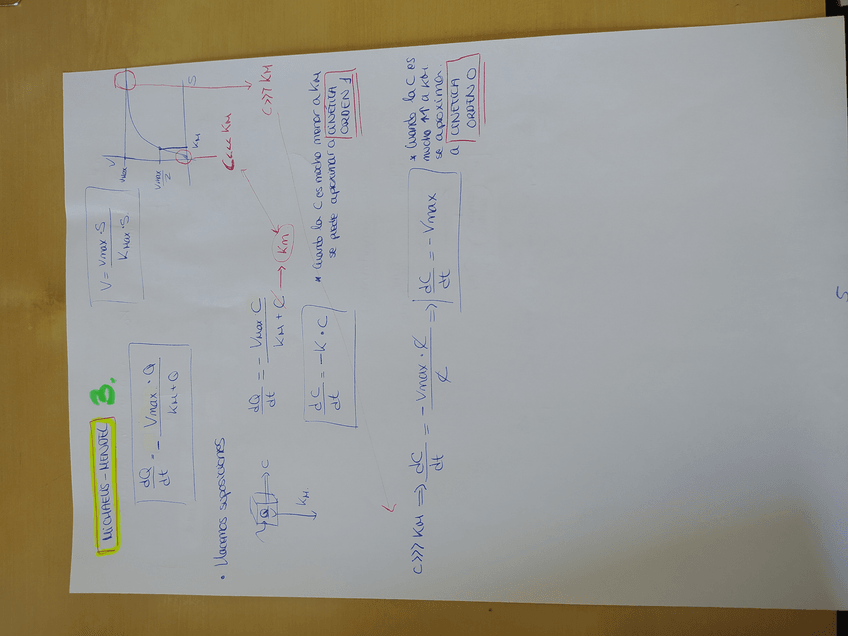 MICHAELIS-MENDEL 3.
dQ/dt = - Vmax · Q / KM + Q
V = Vmax · S / KMax · S
V
Vmax
Vmax/2
KM
S
C<<< KM
C>>> KM
• Hacemos suposiciones
Q → C
KM
dQ/dt = - VMax C / KM + C → KM
dC/dt = -K · C
* Cuando la C es mucho menor a KM
se puede aproximar a CINÉTICA
ORDEN 1
C>>> KM ⇒ dC/dt = - Vmax · C / C ⇒ dC/dt = - Vmax
* Cuando la C es
mucho a KM
se aproximan
a CINETICA
ORDEN 0
5